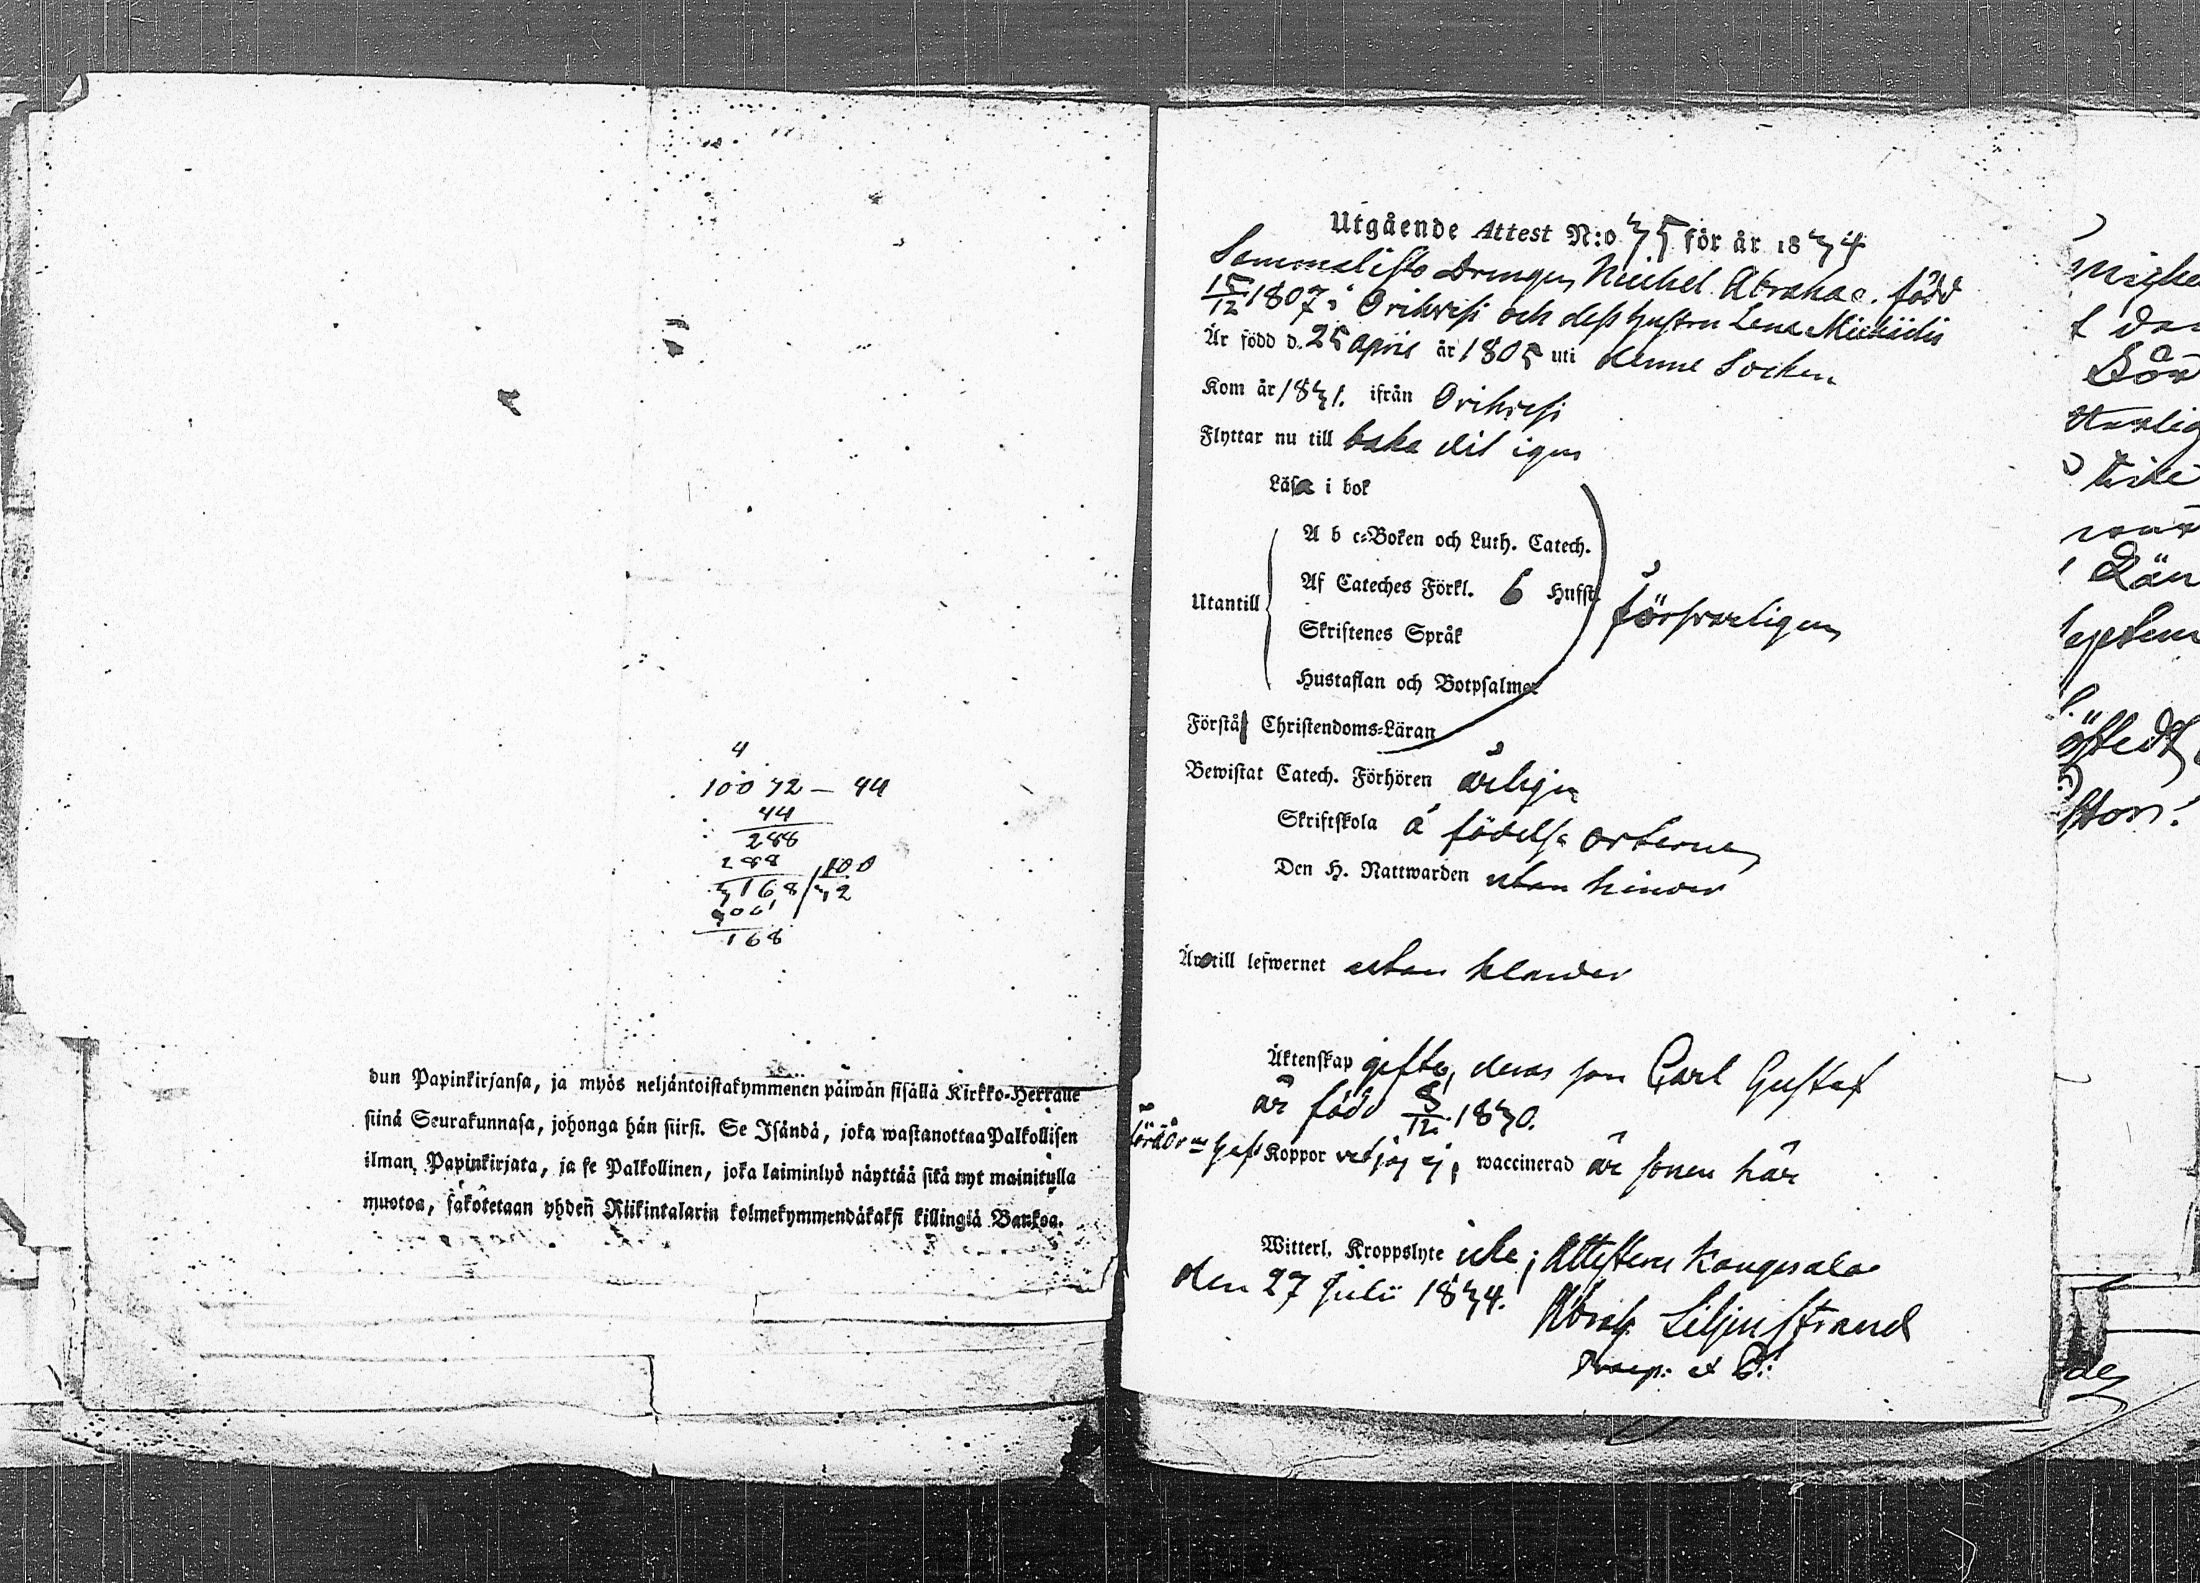 4
10072 - 44
44
288
288
3168/100
32
300
168
dun Papinkirjansa, ja myös neljäntoistakymmenen päiwän sisällä Kirkko-Herralle
siinä Seurakunnasa, johonga hän siirsi. Se Isändä, joka wastanottaa Palkollisen
ilman Papinkirjata, ja se Palkollinen, joka laiminlyö näyttää sitä nyt mainitulla
muotoa, sakotetaan yhden Riikintalarin kolmekymmendäkaksi killingiä Bankoa.
Utgående Attest N:o 35 för år 1834
Sammalisto Drengen Michel Abrahs. född
15/12 1807 i Orihvesi och dess hustru Lena Michelis
Är född d. 25 April år 1805 uti denne Socken
Kom år 1831. ifrån Orihvesi
Flyttar nu till baka dit igen
Läsa i bok
A b c-Boken och Luth. Catech.
Af Cateches Förkl. 6 Hufst.
Utantill försvarligen
Skriftenes Språk
Hustaflan och Botpsalmer
Förstå Christendoms-Läran
Bewistat Catech. Förhören årligen
Skriftskola å födelse orterne
Den H. Nattwarden utan hinder
Äro till lefwernet utan klander
Äktenskap gifte, deras son Carl Gustaf
är född 8/12 1830.
Föräldrne haft Koppor vet jag ej, waccinerad är sonen här
Witterl. Kroppslyte icke; Attesterer Kangasala
den 27 Julii 1834.
Abrah. Liljenstrand
Praep. et P.